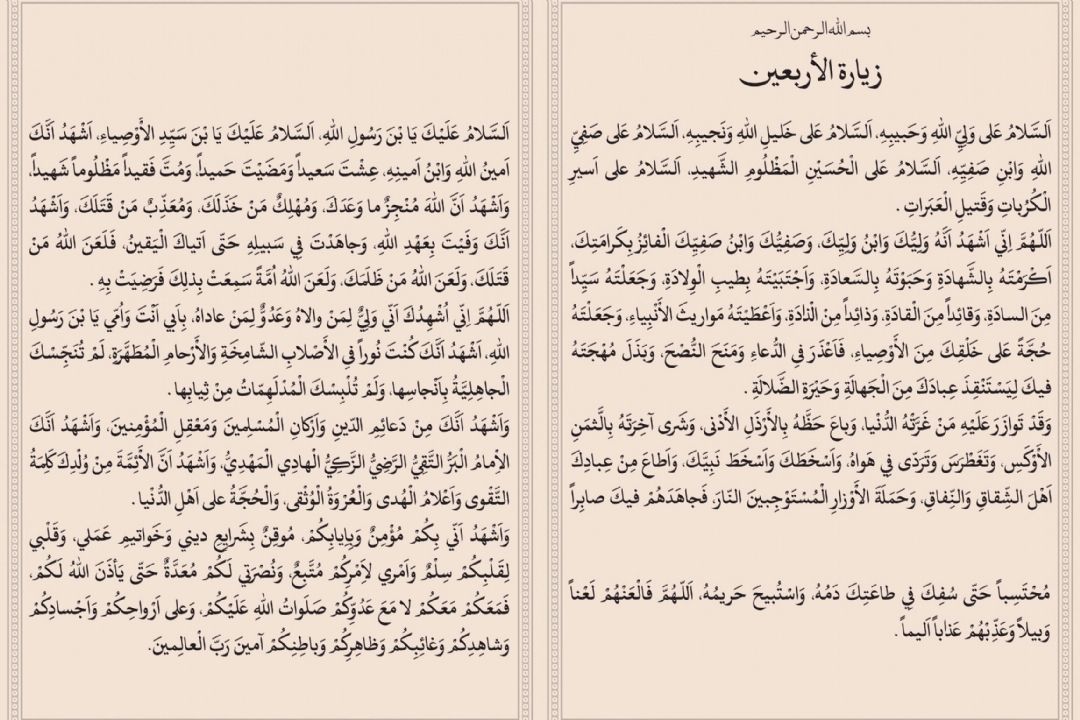 بسم الله الرحمن الرحيم
زيارة الأربعين
اَلسَّلامُ عَلى وَلِيِّ اللهِ وَحَبيبِهِ، اَلسَّلامُ عَلى خَليلِ اللهِ وَنَجيبِهِ، اَلسَّلامُ عَلى صَفِيِّ
اللهِ وَابْنِ صَفِيِّهِ، اَلسَّلامُ عَلى الْحُسَيْنِ الْمَظْلُومِ الشَّهيدِ، اَلسَّلامُ على اَسيرِ
الْكُرُباتِ وَقَتيلِ الْعَبَراتِ .
اَللّهُمَّ اِنّي اَشْهَدُ اَنَّهُ وَلِيُّكَ وَابْنُ وَلِيِّكَ، وَصَفِيُّكَ وَابْنُ صَفِيِّكَ الْفائِزُ بِكَرامَتِكَ،
اَكْرَمْتَهُ بِالشَّهادَةِ وَحَبَوْتَهُ بِالسَّعادَةِ، وَاَجْتَبَيْتَهُ بِطيبِ الْوِلادَةِ، وَجَعَلْتَهُ سَيِّداً
مِنَ السادَةِ، وَقائِداً مِنَ الْقادَةِ، وَذائِداً مِنْ الْذادَةِ، وَاَعْطَيْتَهُ مَواريثَ الأَنْبِياءِ، وَجَعَلْتَهُ
حُجَّةً عَلى خَلْقِكَ مِنَ الأَوْصِياءِ، فَاَعْذَرَ في الدُّعاءِ وَمَنَحَ النُّصْحَ، وَبَذَلَ مُهْجَتَهُ
فيكَ لِيَسْتَنْقِذَ عِبادَكَ مِنَ الْجَهالَةِ وَحَيْرَةِ الضَّلالَةِ .
وَقَدْ تَوازَرَ عَلَيْهِ مَنْ غَرَّتْهُ الدُّنْيا، وَباعَ حَظَّهُ بِالأَرْذَلِ الأَدْنى، وَشَرى آخِرَتَهُ بِالَّثمَنِ
الأَوْكَسِ، وَتَغَطْرَسَ وَتَرَدّى في هَواهُ، وَاَسْخَطَكَ وَاَسْخَطَ نَبِيَّكَ، وَاَطاعَ مِنْ عِبادِكَ
اَهْلَ الشِّقاقِ وَالنِّفاقِ، وَحَمَلَةَ الأَوْزارِ الْمُسْتَوْجِبينَ النّارَ، فَجاهَدَهُمْ فيكَ صابِراً
مُحْتَسِباً حَتّى سُفِكَ فِي طاعَتِكَ دَمُهُ، وَاسْتُبيحَ حَريمُهُ، اَللّهُمَّ فَالْعَنْهُمْ لَعْناً
وَبيلاً وَعَذِّبْهُمْ عَذاباً اَليماً .
اَلسَّلامُ عَلَيْكَ يَا بْنَ رَسُولِ اللهِ، اَلسَّلامُ عَلَيْكَ يَا بْنَ سَيِّدِ الأَوْصِياءِ، اَشْهَدُ اَنَّكَ
اَمينُ اللهِ وَابْنُ اَمينِهِ، عِشْتَ سَعيداً وَمَضَيْتَ حَميداً، وَمُتَّ فَقيداً مَظْلُوماً شَهيداً،
وَاَشْهَدُ اَنَّ اللهَ مُنْجِزٌ ما وَعَدَكَ، وَمُهْلِكٌ مَنْ خَذَلَكَ، وَمُعَذِّبٌ مَنْ قَتَلَكَ، وَاَشْهَدُ
اَنَّكَ وَفَيْتَ بِعَهْدِ اللهِ، وَجاهَدْتَ فِي سَبيلِهِ حَتّى اَتياكَ الْيَقينُ، فَلَعَنَ اللهُ مَنْ
قَتَلَكَ، وَلَعَنَ اللهُ مَنْ ظَلَمَكَ، وَلَعَنَ اللهُ اُمَّةً سَمِعَتْ بِذلِكَ فَرَضِيَتْ بِهِ .
اَللّهُمَّ اِنّي اُشْهِدُكَ اَنّي وَلِيٌّ لِمَنْ والاهُ وَعَدُوٌّ لِمَنْ عاداهُ، بِاَبي اَنْتَ وَاُمّي يَا بْنَ رَسُولِ
اللهِ، اَشْهَدُ اَنَّكَ كُنْتَ نُوراً في الأَصْلابِ الشّامِخَةِ وَالأَرْحامِ الْمُطَهَّرَةِ، لَمْ تُنَجِّسْكَ
الْجاهِلِيَّةُ بِاَنْجاسِها، وَلَمْ تُلْبِسْكَ الْمُدْلَهِمّاتُ مِنْ ثِيابِها .
وَاَشْهَدُ اَنَّكَ مِنْ دَعائِمِ الدّينِ وَاَرْكانِ الْمُسْلِمينَ وَمَعْقِلِ الْمُؤْمِنينَ، وَاَشْهَدُ اَنَّكَ
الاِْمامُ الْبَرُّ التَّقِيُّ الرَّضِيُّ الزَّكِيُّ الْهادِي الْمَهْدِيُّ، وَاَشْهَدُ اَنَّ الأَئِمَّةَ مِنْ وُلْدِكَ كَلِمَةُ
التَّقْوى وَاَعْلامُ الْهُدى وَالْعُرْوَةُ الْوُثْقى، وَالْحُجَّةُ على اَهْلِ الدُّنْيا.
وَاَشْهَدُ اَنّي بِكُمْ مُؤْمِنٌ وَبِاِيابِكُمْ، مُوقِنٌ بِشَرايِعِ ديني وَخَواتيمِ عَمَلي، وَقَلْبي
لِقَلْبِكُمْ سِلْمٌ وَاَمْري لاَِمْرِكُمْ مُتَّبِعٌ، وَنُصْرَتي لَكُمْ مُعَدَّةٌ حَتّى يَأذَنَ اللهُ لَكُمْ،
فَمَعَكُمْ مَعَكُمْ لا مَعَ عَدُوِّكُمْ صَلَواتُ اللهِ عَلَيْكُمْ، وَعلى اَرْواحِكُمْ وَاَجْسادِكُمْ
وَشاهِدِكُمْ وَغائِبِكُمْ وَظاهِرِكُمْ وَباطِنِكُمْ آمينَ رَبَّ الْعالِمينَ.